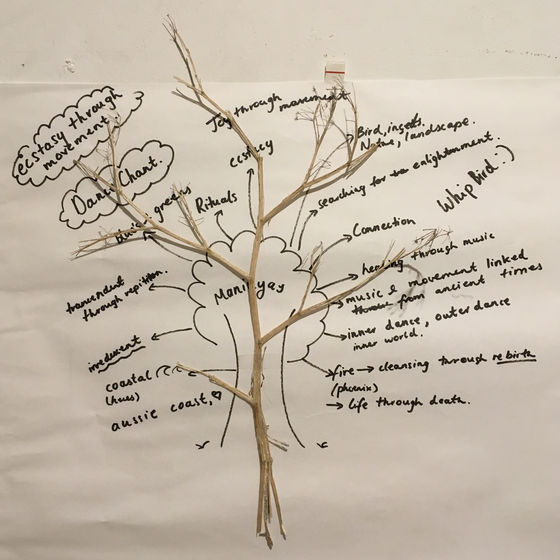 Joy through movement
ecstasy through
movement.
ecstacy
Bird, insects.
Nature, landscape.
Dance, Chant.
searching for enlightenment.
Whip Bird :)
Rituals
greens
Connection
healing through music
trancendent
through repitition.
music & movement linked
from ancient times
inner dance, outer dance
inner world.
coastal
(hues)
fire → cleansing through rebirth
(phoenix)
aussie coast, ♡
→ life through death.